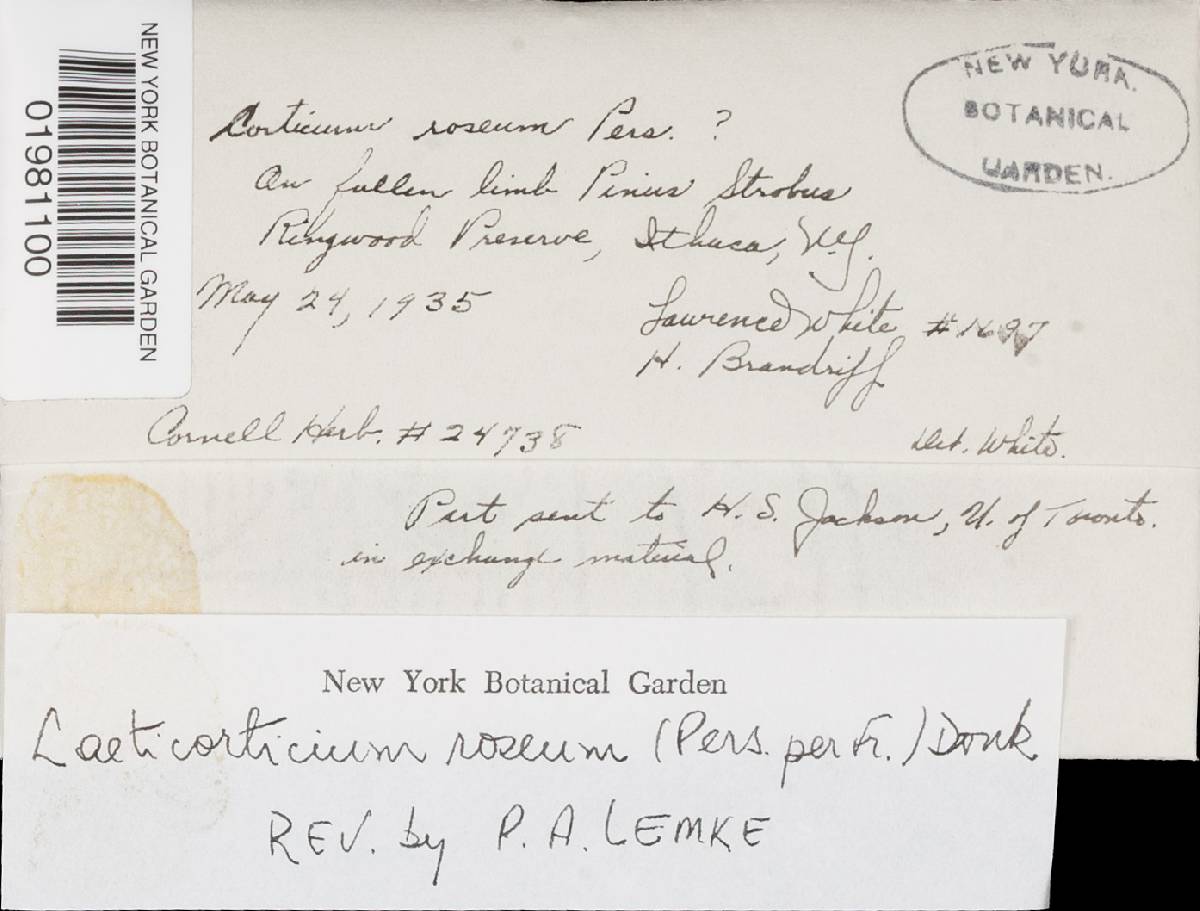 NEW YORK BOTANICAL GARDEN
01981100
NEW YORK
BOTANICAL
GARDEN.
Corticium roseum Pers. ?
On fallen limb Pinus Strobus
Ringwood Preserve, Ithaca, N.Y.
May 24, 1935
Lawrence White #1697
H. Brandriff
Cornell Herb. #24738
Det. White.
Part sent to H. S. Jackson, U. of Toronto.
in exchange material.
New York Botanical Garden
Laeticorticium roseum (Pers. per Fr.) Donk
REV. by P. A. LEMKE